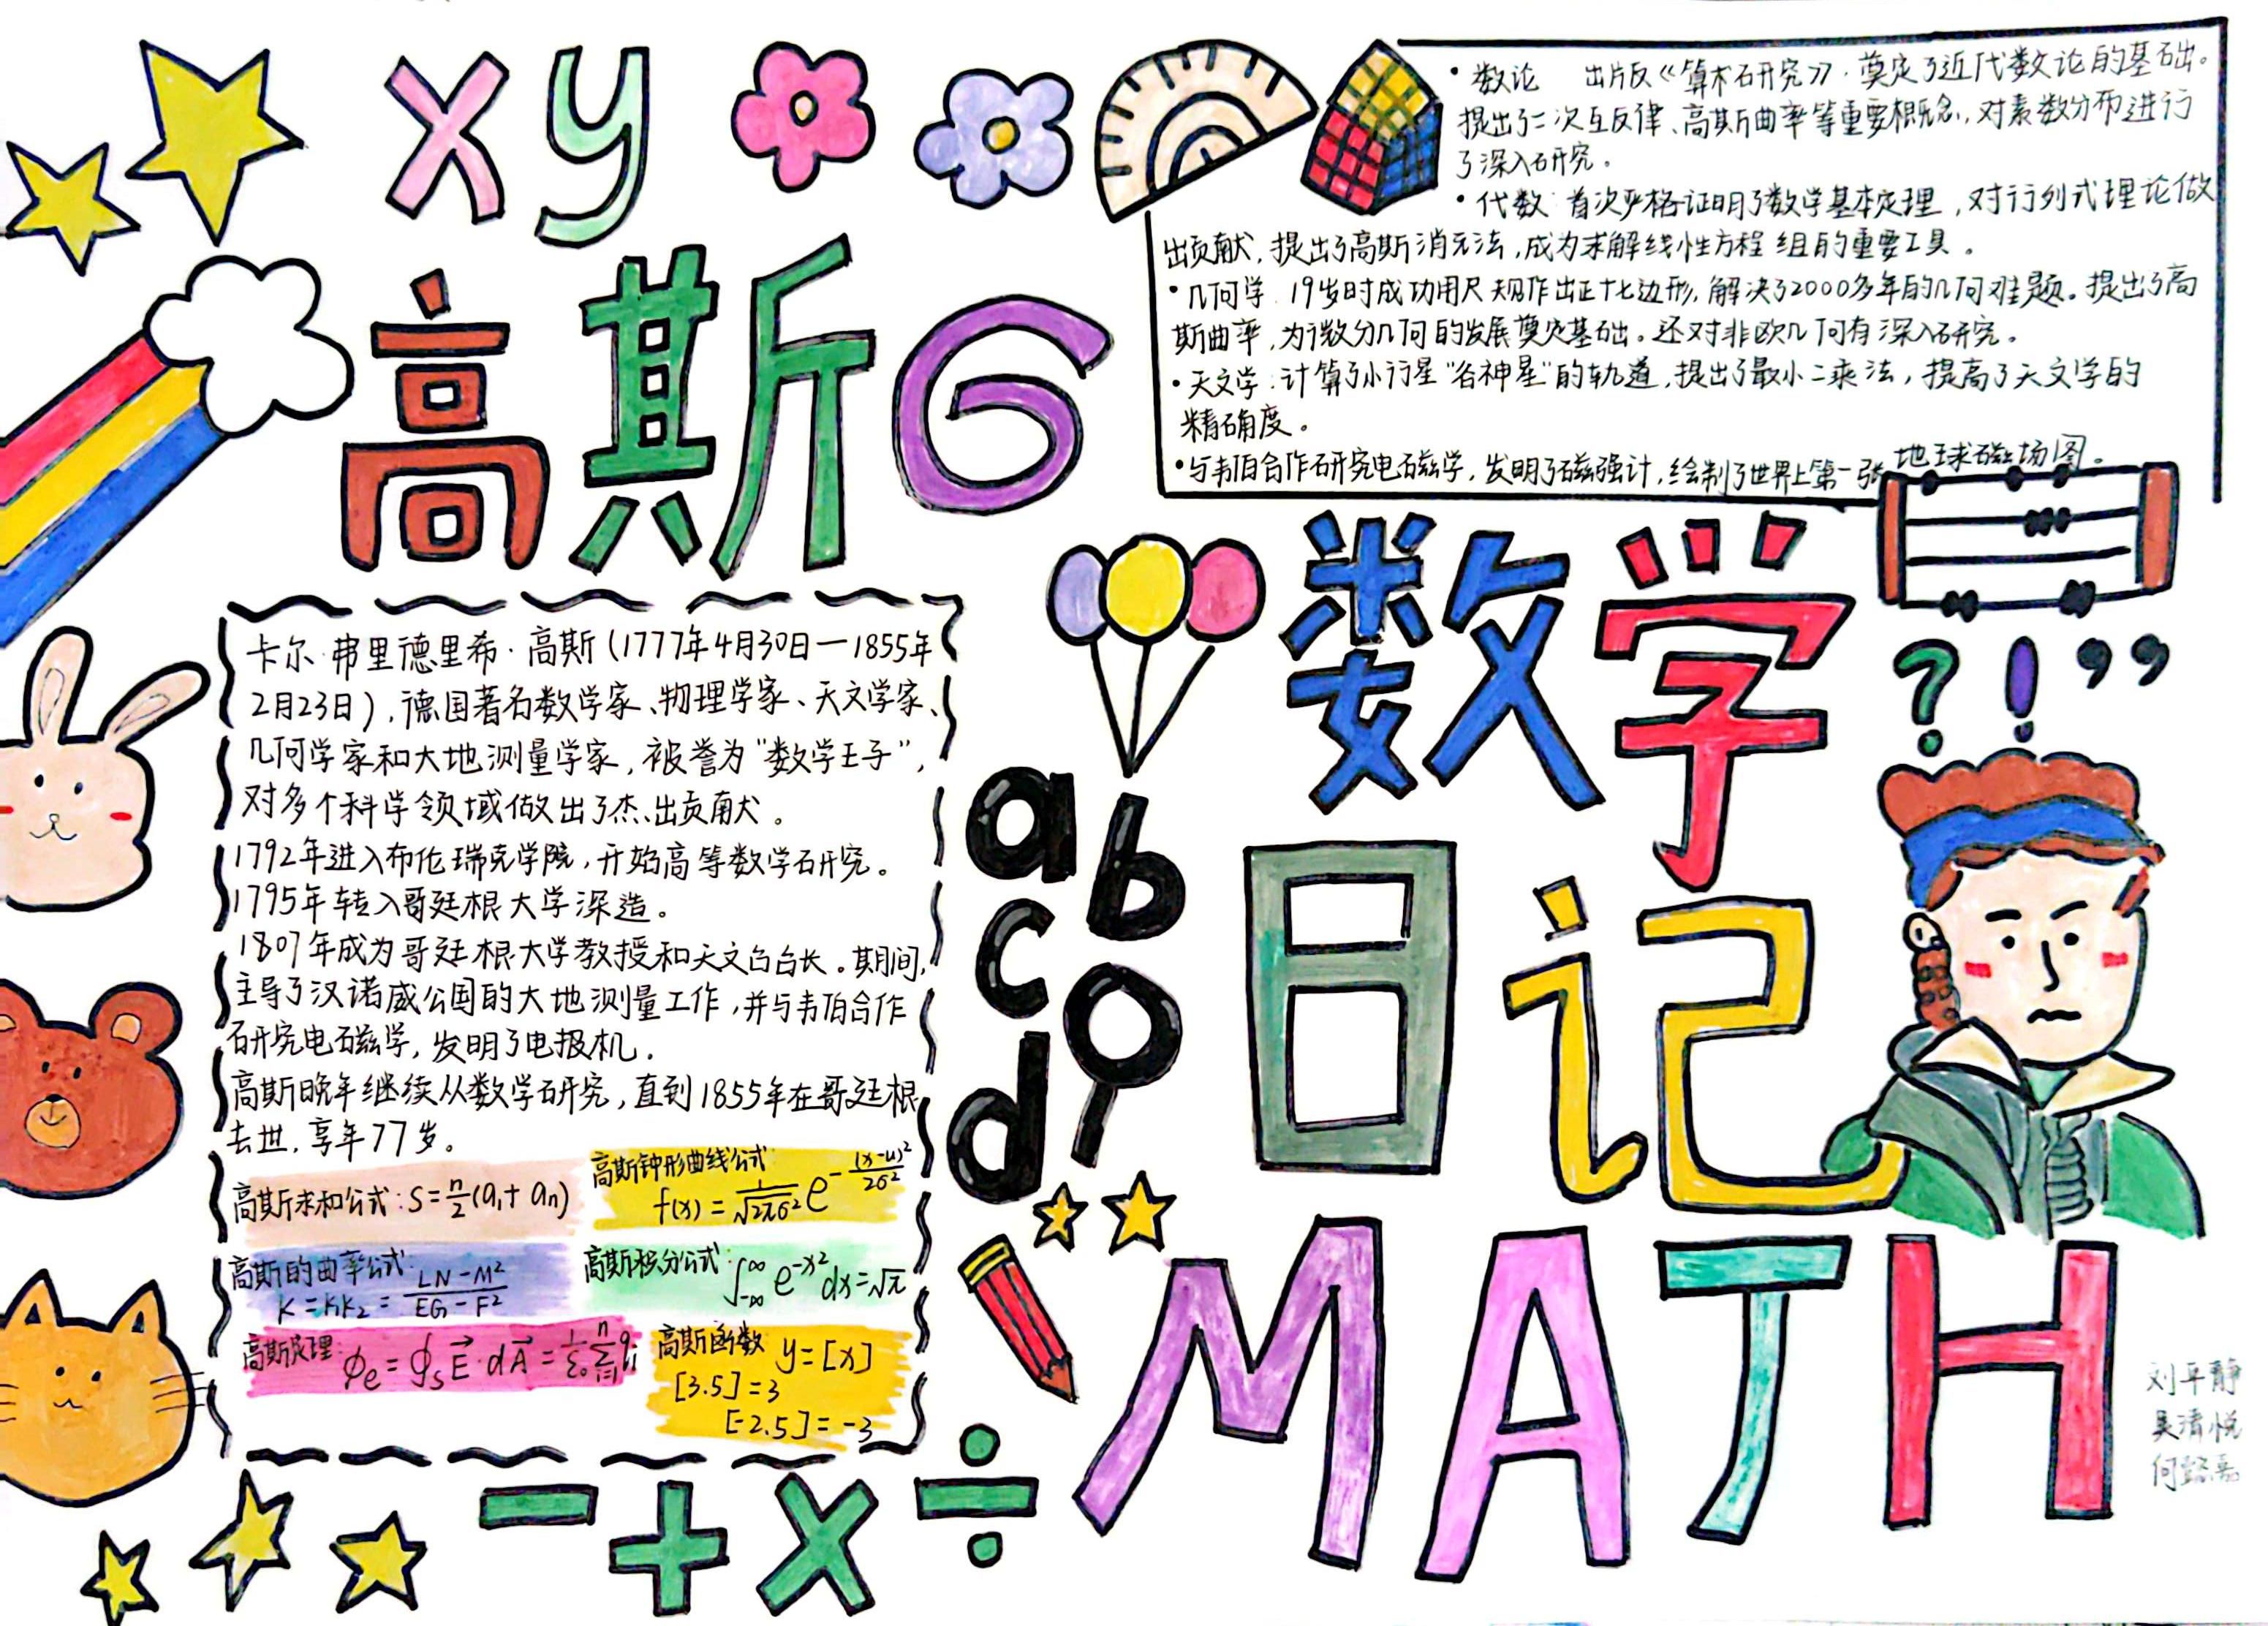 xy
高斯G
• 数论 出片反《算术研究》.奠定了近代数论的基础。
提出了二次互反律、高斯曲率等重要概念,对素数分布进行
了深入研究。
• 代数:首次严格证明了数学基本定理,对行列式理论做
出贡献,提出了高斯消元法,成为求解线性方程组的重要工具。
• 几何学:19岁时成功用尺规作出正十七边形,解决了2000多年的几何难题。提出了高
斯曲率,为微分几何的发展奠定基础。还对非欧几何有深入研究。
• 天文学:计算了小行星“谷神星”的轨道,提出了最小二乘法,提高了天文学的
精确度。
• 与韦伯合作研究电磁学,发明了磁强计,绘制了世界上第一张地球磁场图。
卡尔·弗里德里希·高斯(1777年4月30日—1855年
2月23日),德国著名数学家、物理学家、天文学家、
几何学家和大地测量学家,被誉为“数学王子”,
对多个科学领域做出了杰出贡献。
1792年进入布伦瑞克学院,开始高等数学研究。
1795年转入哥廷根大学深造。
1807年成为哥廷根大学教授和天文台台长。期间,
主导了汉诺威公国的大地测量工作,并与韦伯合作
研究电磁学,发明了电报机.
高斯晚年继续从数学研究,直到1855年在哥廷根
去世,享年77岁。
高斯求和公式:S=n/2(a₁+an)
高斯钟形曲线公式
f(x)=1/√2πσ² e^-(x-u)²/2σ²
高斯的曲率公式:
K=K₁K₂=LN-M²/EG-F²
高斯积分公式:∫-∞^∞ e^-x² dx=√π
高斯定理:Φe=∮s E⃗·dA⃗=1/ε₀ Σ(i=1,n) qi
高斯函数 y=[x]
[3.5]=3
[-2.5]=-3
数学
? ! ,,
a
b
c
d
日记
MATH
- + × ÷
刘平静
吴清悦